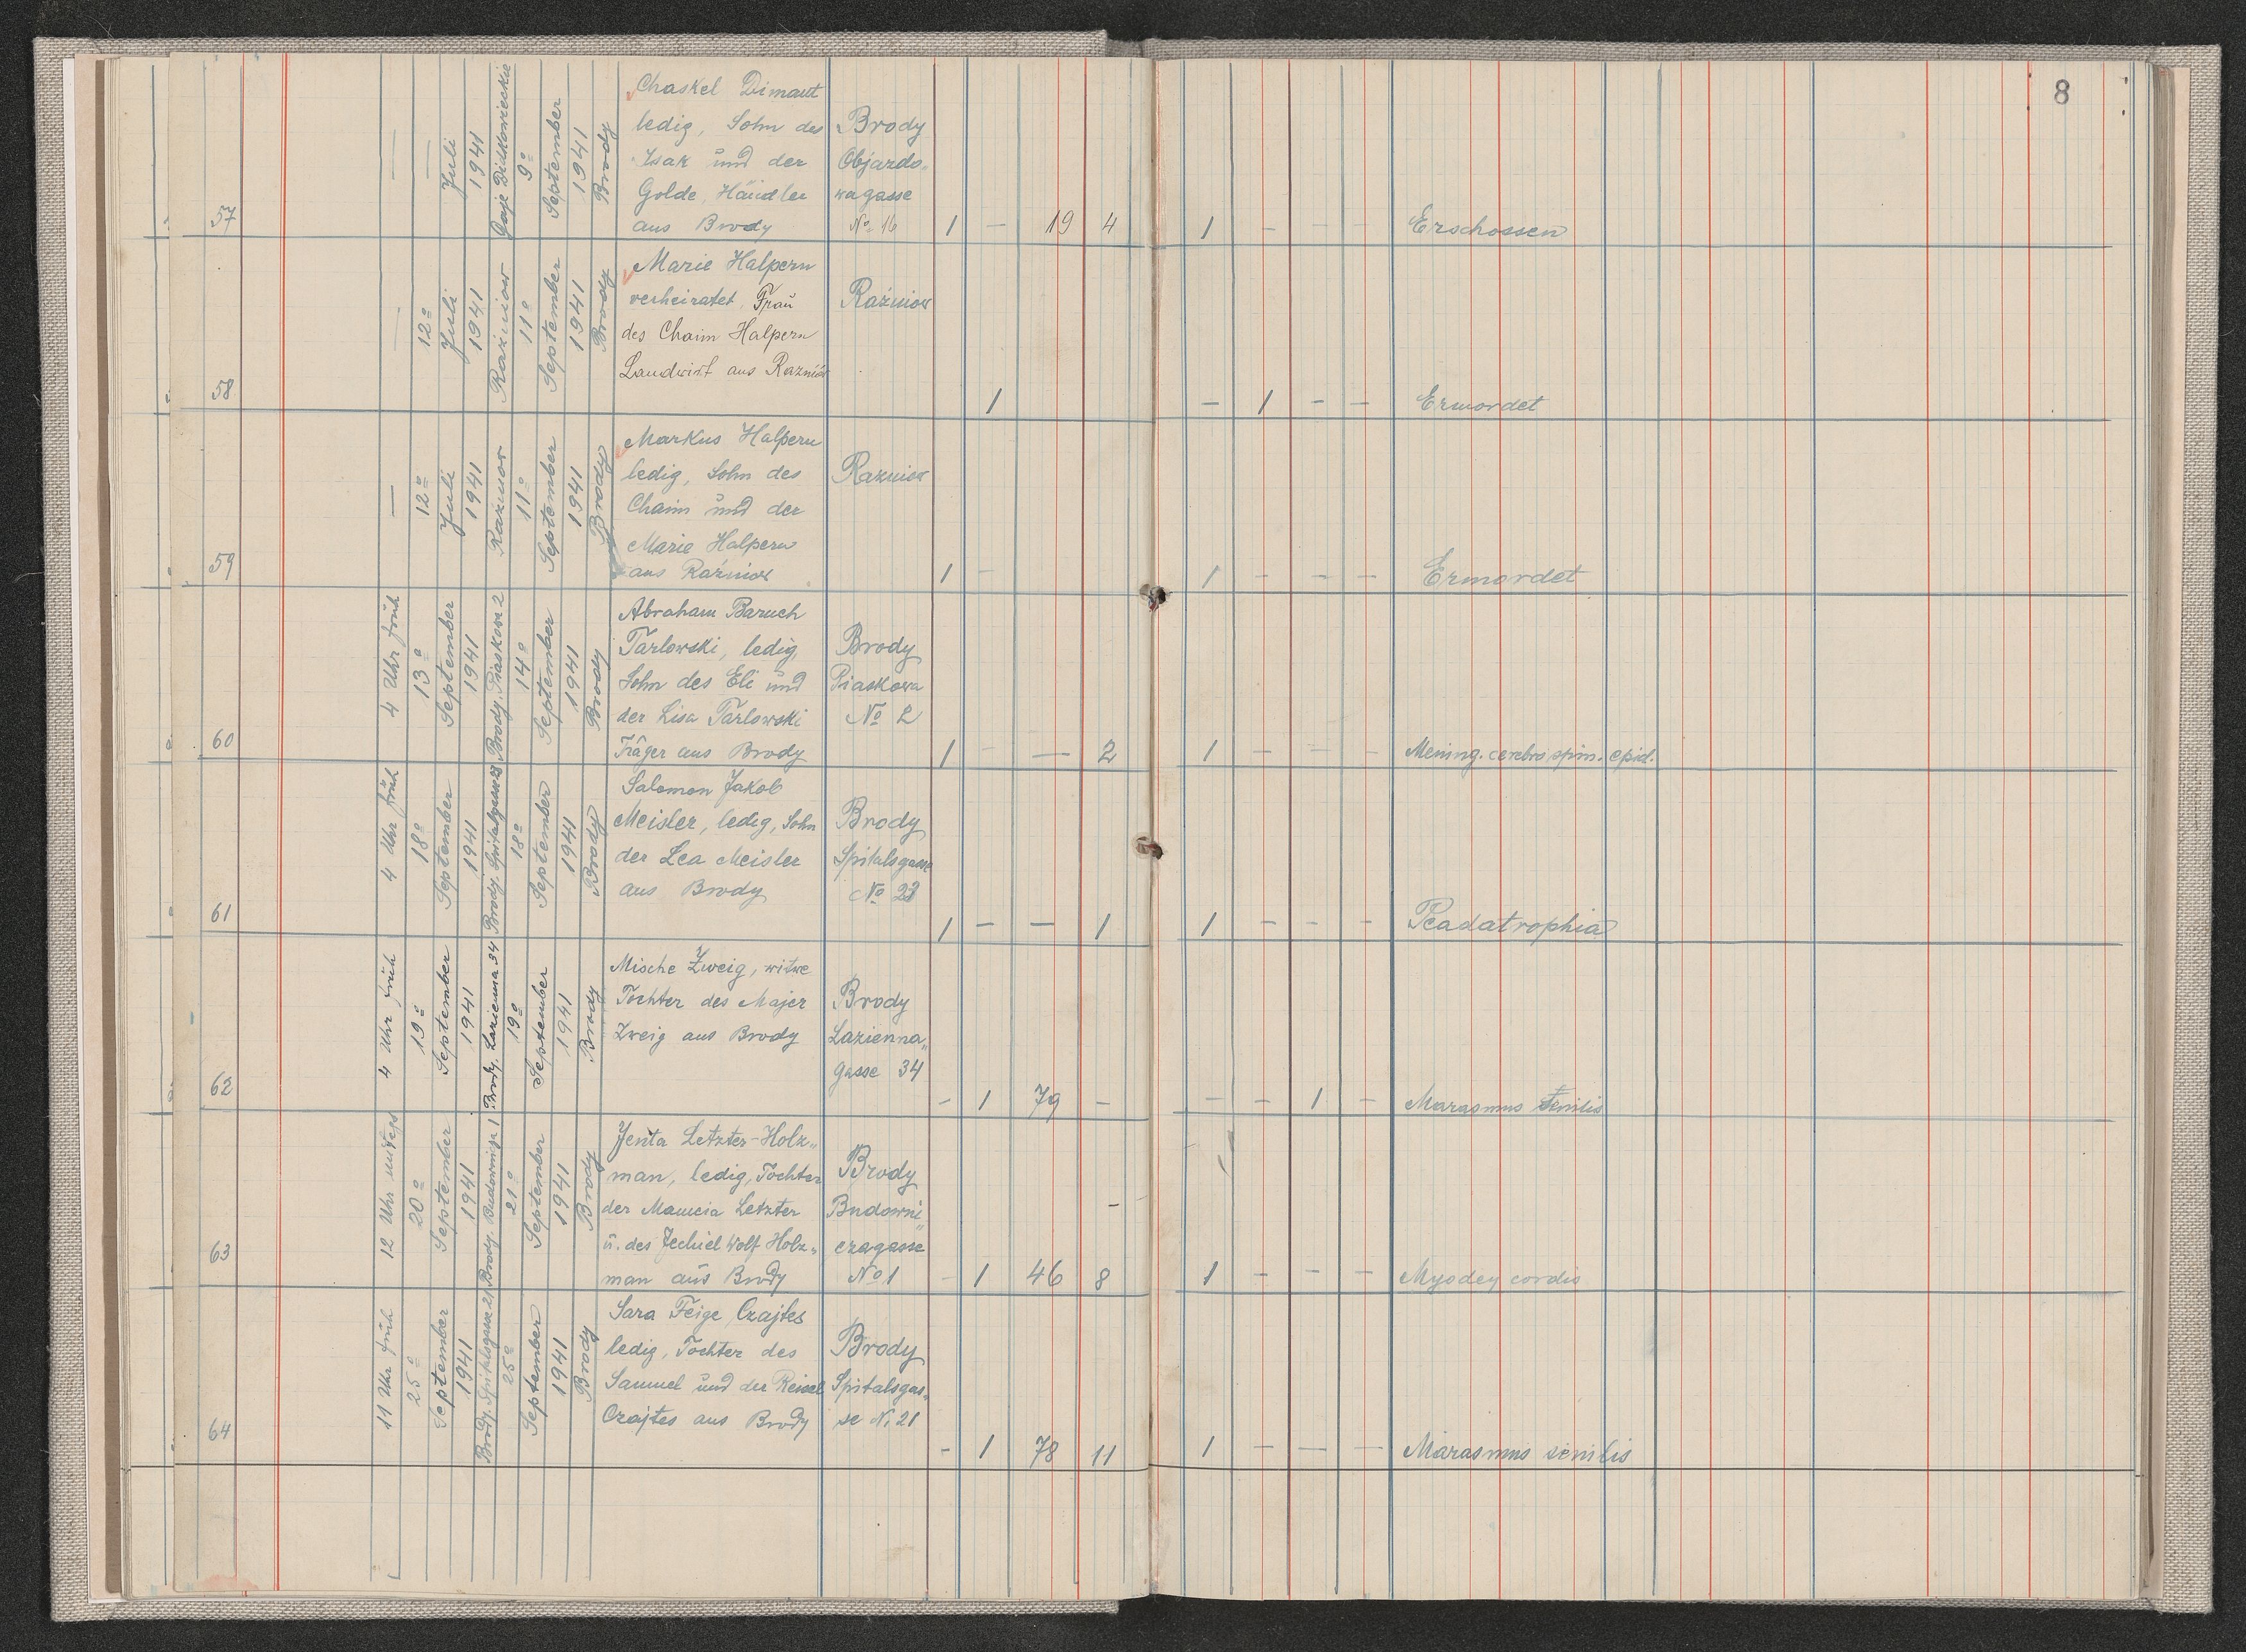 8
57
—
—
Juli
1941
Gaje Didkowieckie
9º
September
1941
Brody
Chaskel Dimant
ledig, Sohn des
Isak und der
Golde, Händler
aus Brody
Brody
Objazdo„
wagasse
Nº 16
1 — 19 4
1 — — —
Erschossen
58
—
12º
Juli
1941
Raźniow
11º
September
1941
Brody
Marie Halpern
verheiratet, Frau
des Chaim Halpern
Landwirt aus Razniów
Raźniow
1
— 1 — —
Ermordet
59
—
12º
Juli
1941
Raźniow
11º
September
1941
Brody
Markus Halpern
ledig, Sohn des
Chaim und der
Marie Halpern
aus Raźniow
Razniow
1 —
1 — — —
Ermordet
60
4 Uhr früh
13º
September
1941
Brody, Piaskowa 2
14º
September
1941
Brody
Abraham Baruch
Tarlowski, ledig,
Sohn des Eli und
der Lisa Tarlowski
Träger aus Brody
Brody
Piaskowa
Nº 2
1 — — 2
1 — — —
Mening. cerebro spin. epid.
61
4 Uhr früh
18º
September
1941
Brody, Spitalsgasse 23
18º
September
1941
Brody
Salomon Jakob
Meisler, ledig, Sohn
der Lea Meisler
aus Brody
Brody
Spitalsgasse
Nº 23
1 — — 1
1 — — —
Peadatrophia
62
4 Uhr früh
19º
September
1941
Brody, Lazienna 34
19º
September
1941
Brody
Mische Zweig, witwe
Tochter des Majer
Zweig aus Brody
Brody
Lazienna„
gasse 34
— 1 79 —
— — 1 —
Marasmus senilis
63
12 Uhr mittags
20º
September
1941
Brody, Budownicza 1
21º
September
1941
Brody
Jenta Letzter-Holz„
man, ledig, Tochter
der Mamcia Letzter
u. des Jechiel Wolf Holz„
man aus Brody
Brody
Budowni„
czagasse
Nº 1
— 1 46 8
1 — — —
Myodeg cordis
64
11 Uhr früh
25º
September
1941
Brody, Spitalsgasse 21
25º
September
1941
Brody
Sara Feige Czajtes
ledig, Tochter des
Samuel und der Reisel
Czajtes aus Brody
Brody
Spitalsgas„
se N. 21
— 1 78 11
1 — — —
Marasmus senilis